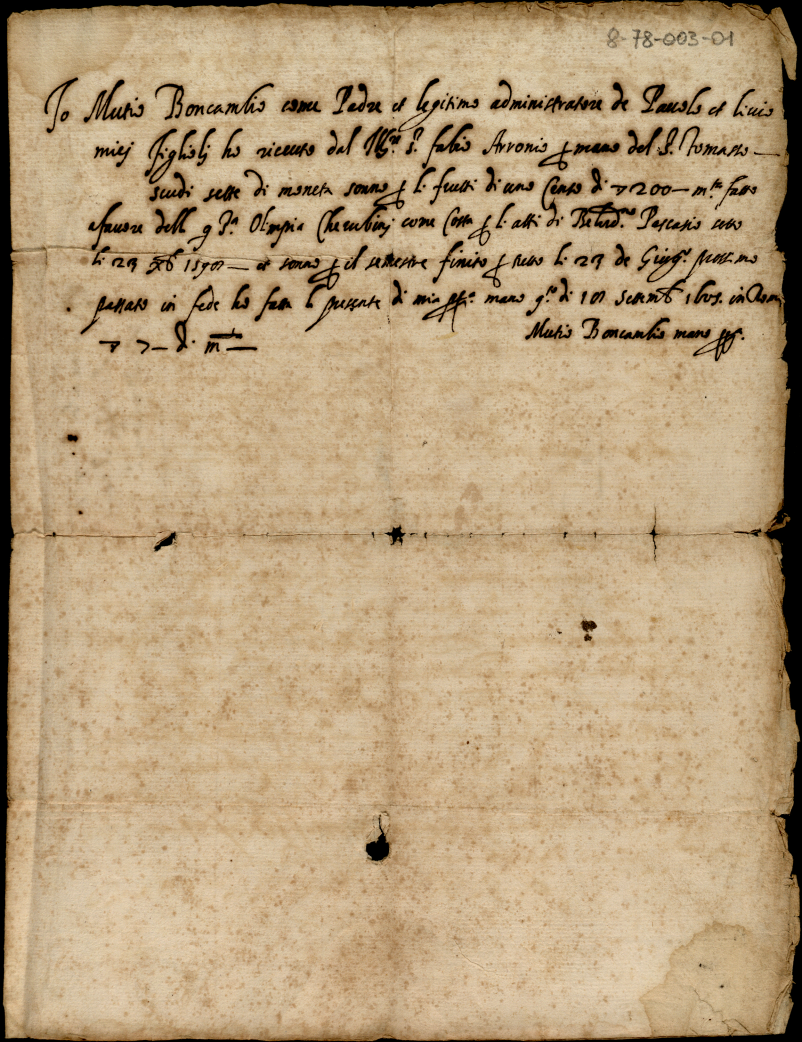 8-78-003-01
Io Mutio Boncambio come Padre et legitimo administratore de Pauolo et liuio
miej figliolj ho riceuto dal s.r fabio Arronio p mano del S. Tomasso —
scudi sette di moneta sonno p li frutti di uno Censo di ▽ 200 — m.ta fatto
a fauore dell q Sª. Olimpia Cherubinj come Costa p li atti di Pascasio sotto
li 23 — et sonno p il semestre finito p tutto li 23 de Giug.o prossimo
passato in fede ho fatta la presente di mia mano q.to di Settemb in Roma
Mutio Boncambio mano pp.
▽ 7 — di m —